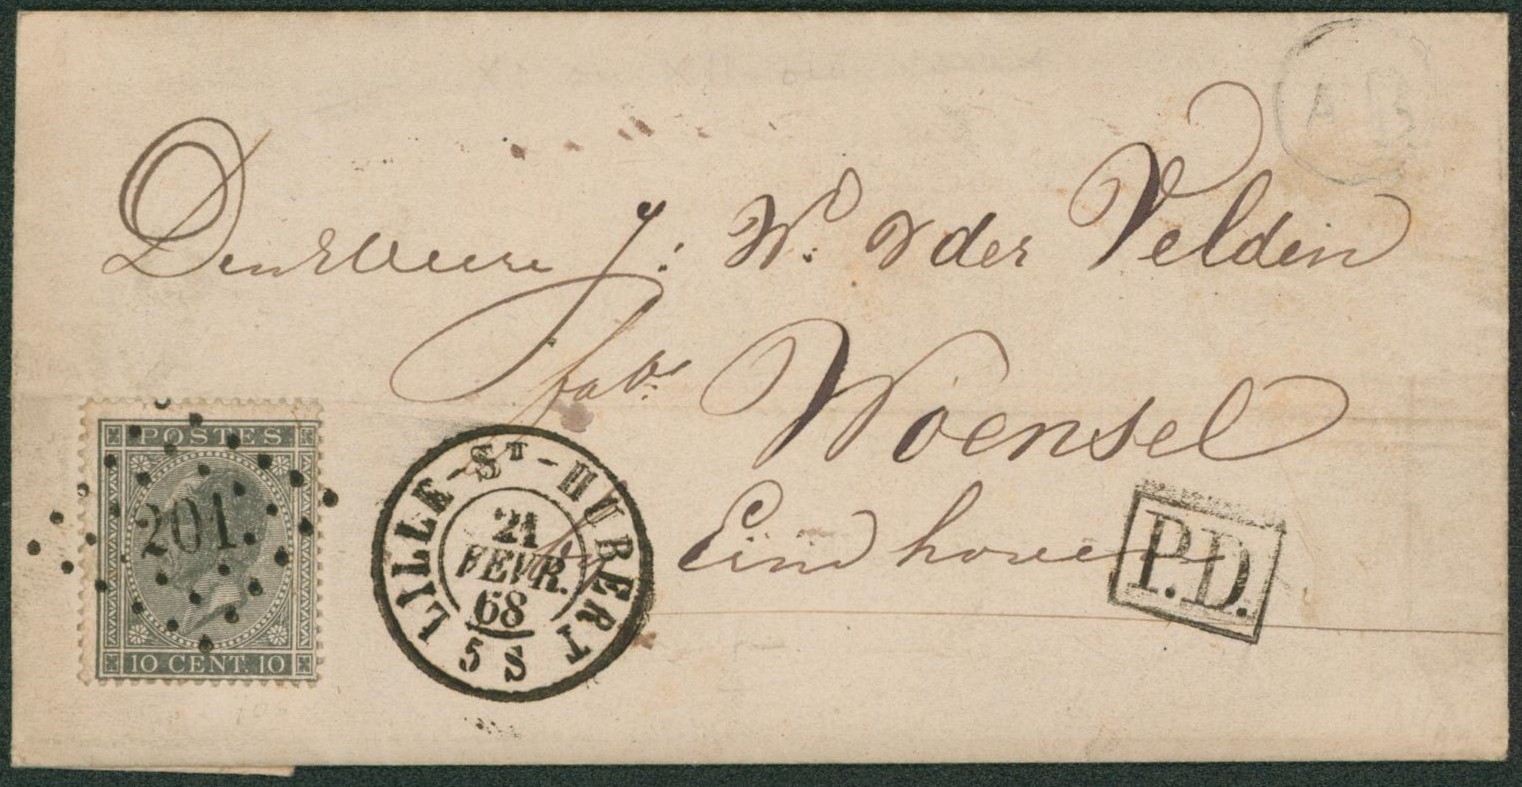 Den Heere J: W: v der Velden
fabr
Woensel
Eindhoven
P.D.
POSTES
201.
10 CENT. 10
LILLE-ST-HUBERT
21
FEVR.
68
5 S
A